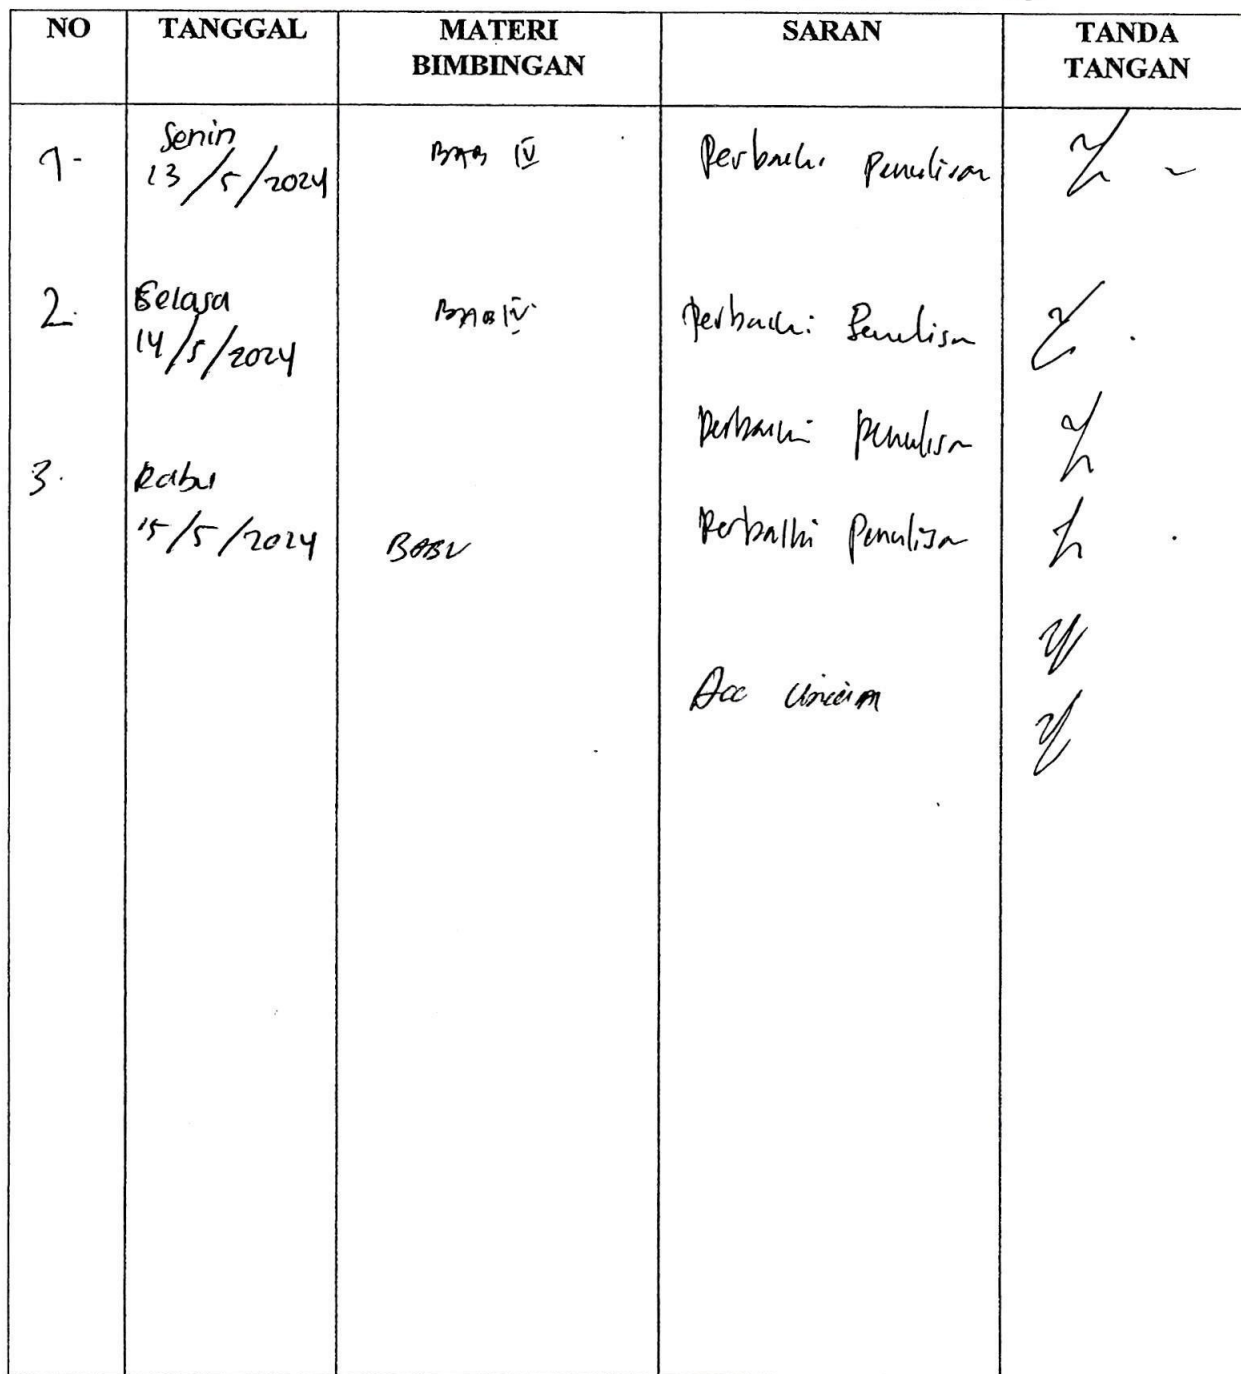 NO TANGGAL MATERI BIMBINGAN SARAN TANDA TANGAN
1. Senin 13/5/2024 BAB IV Perbaiki Penulisan
2. Selasa 14/5/2024 BAB IV Perbaiki Penulisan
Perbaiki penulisan
3. Rabu 15/5/2024 BAB V Perbaiki Penulisan
Acc